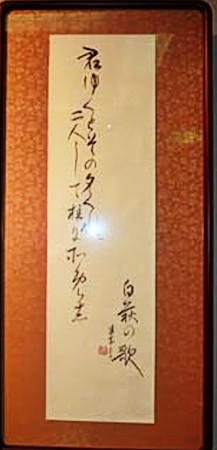 君ゆくとその夕ぐれに
二人して柱にそめし
白萩の歌